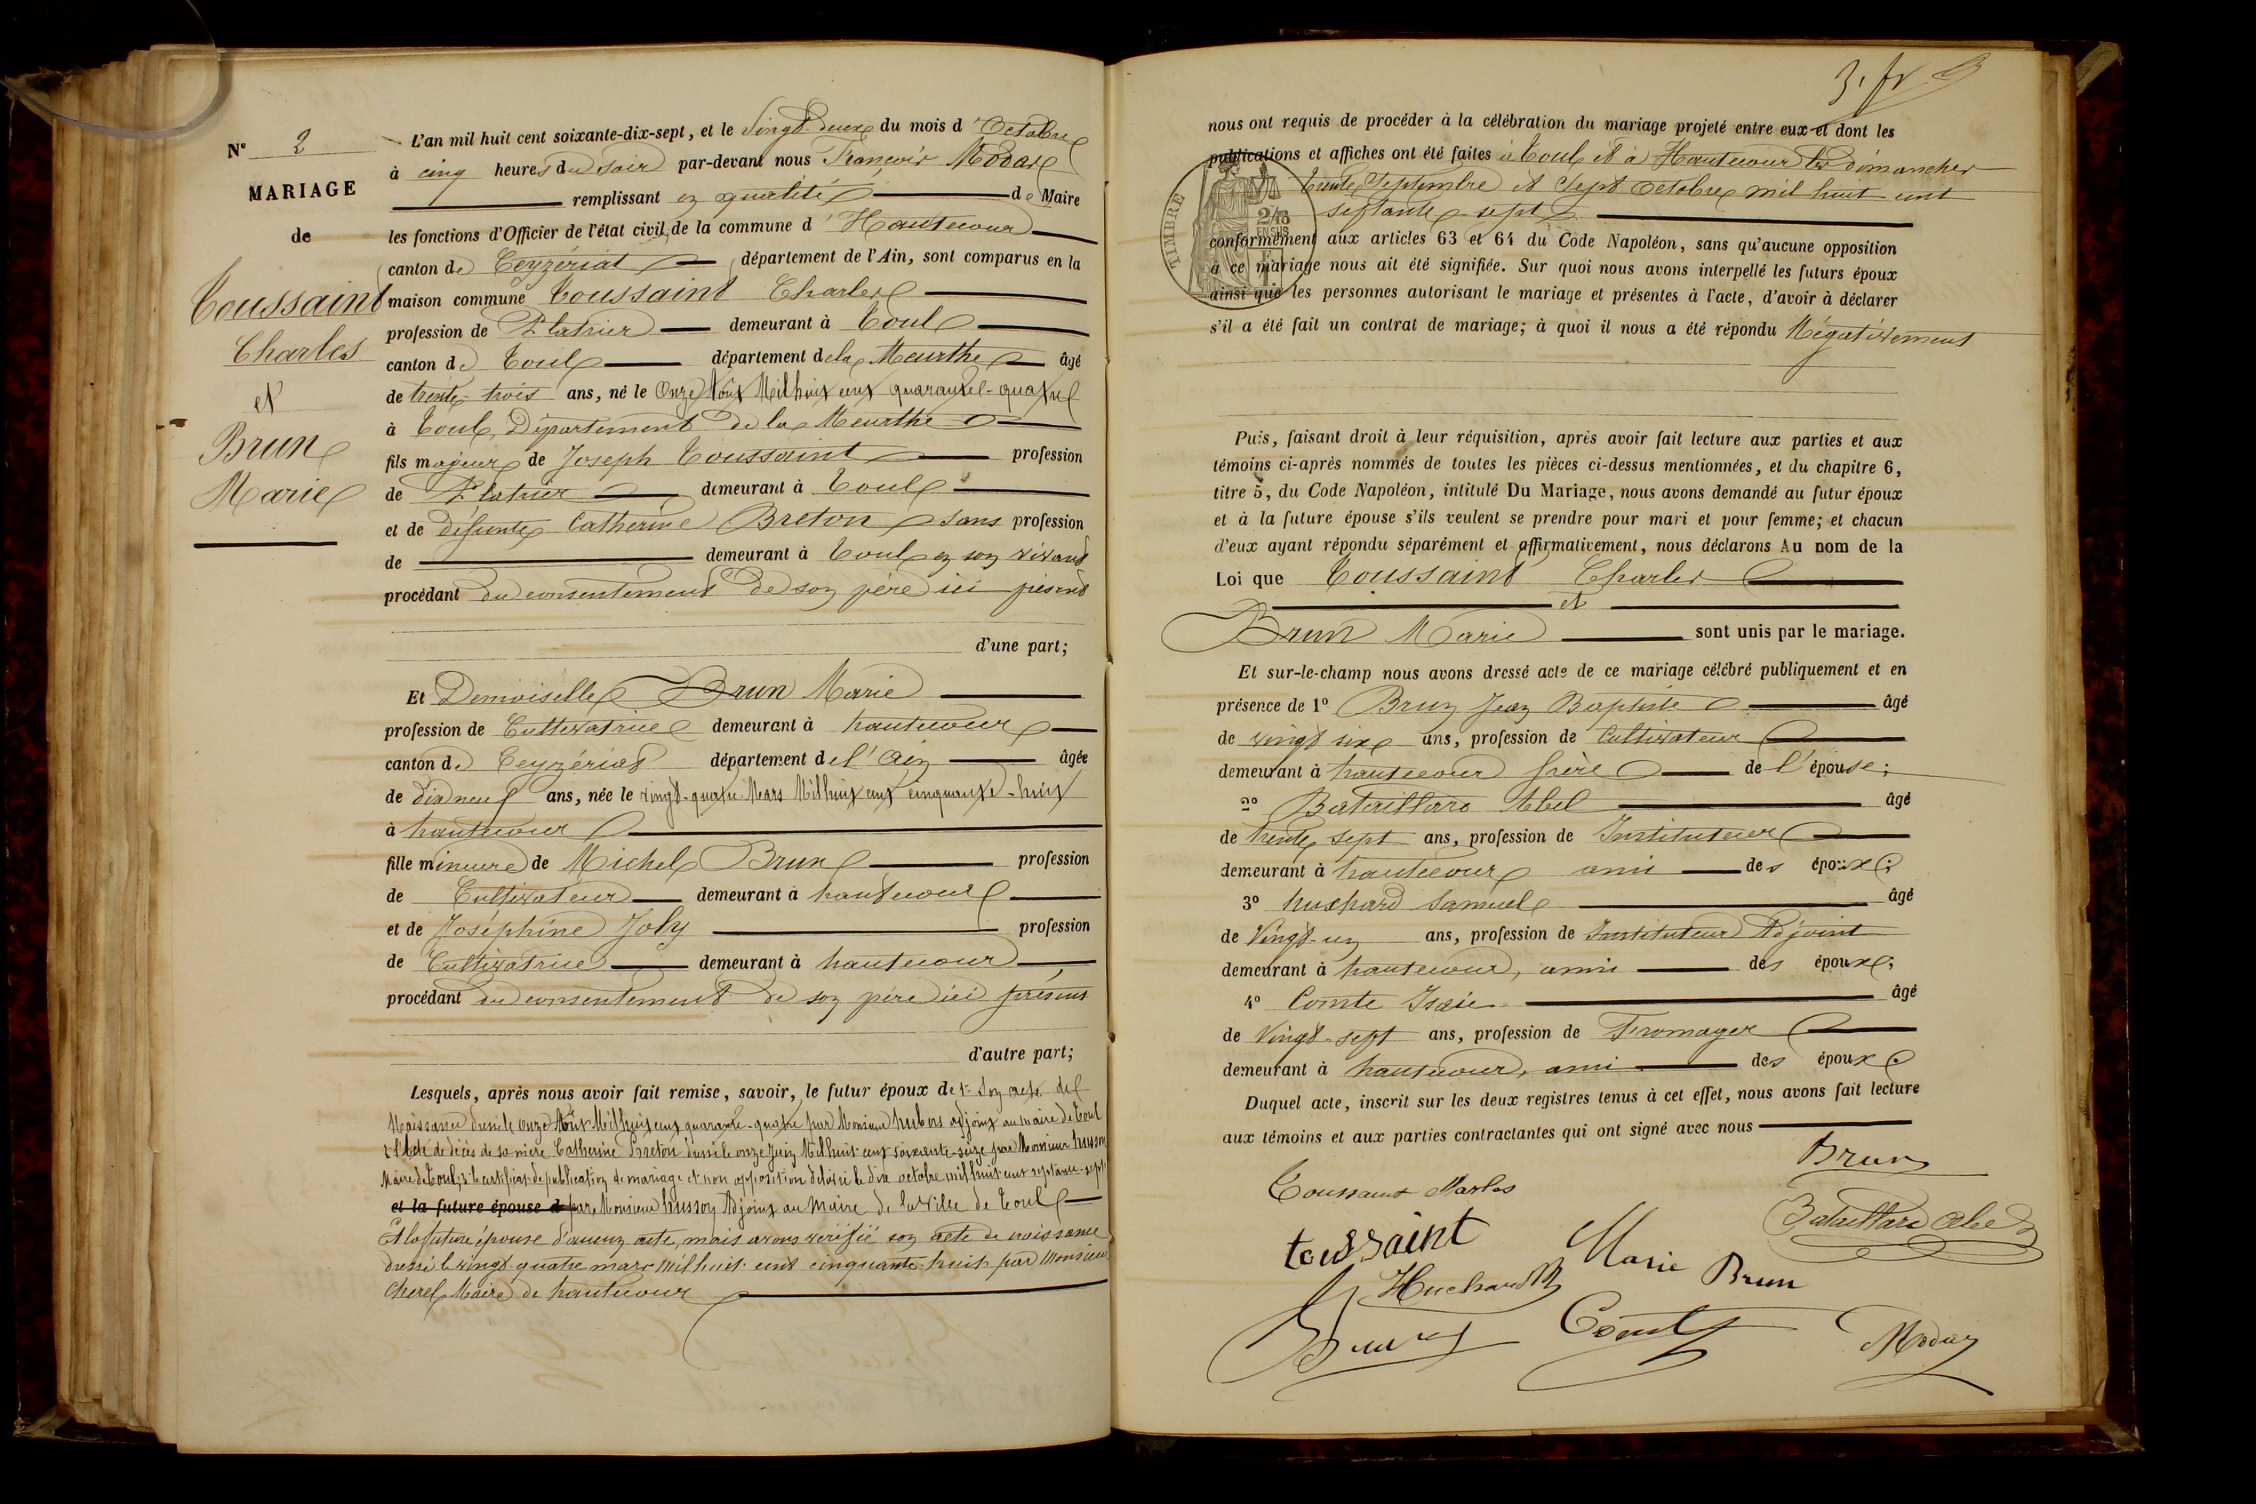 N° 2
MARIAGE
de
Toussaint
Charles
et
Brun
Marie
L'an mil huit cent soixante-dix-sept, et le Vingt-deux du mois d'Octobre
à cinq heures du soir par-devant nous François Moday
remplissant en qualité de Maire
les fonctions d'Officier de l'état civil de la commune d'Hautecour
canton de Ceyzériat, département de l'Ain, sont comparus en la
maison commune Toussaint Charles
profession de Platrier demeurant à Toul
canton de Toul département de la Meurthe âgé
de trente-trois ans, né le Onze Août Mil huit cent quarante-quatre
à Toul, Département de la Meurthe
fils majeur de Joseph Toussaint profession
de Platrier demeurant à Toul
et de défunte Catherine Breton sans profession
de demeurant à Toul en son vivant
procédant du consentement de son père ici présent
d'une part;
Et Demoiselle Brun Marie
profession de Cultivatrice demeurant à hautecour
canton de Ceyzériat département de l'Ain âgée
de dix neuf ans, née le vingt-quatre Mars Mil huit cent cinquante-huit
à hautecour
fille mineure de Michel Brun profession
de Cultivateur demeurant à hautecour
et de Joséphine Joly profession
de Cultivatrice demeurant à hautecour
procédant du consentement de son père ici présent
d'autre part;
Lesquels, après nous avoir fait remise, savoir, le futur époux de 1° Son acte de
Naissance dressé le onze Août Mil huit cent quarante-quatre par Monsieur adjoint au maire de Toul
2° l'Acte de décès de sa mère Catherine Breton dressé le onze Juin Mil huit cent soixante-seize par Monsieur husson
Maire de Toul, 3° le certificat de publication de mariage et non opposition délivré le dix octobre mil huit cent septante-sept
et la future épouse d par Monsieur husson Adjoint au Maire de la Ville de Toul
Et la future épouse d'aucun acte, mais avons vérifié son acte de naissance
dressé le vingt-quatre mars Mil huit cent cinquante-huit par Monsieur
Cherel, Maire de hautecour
3. fr
nous ont requis de procéder à la célébration du mariage projeté entre eux et dont les
publications et affiches ont été faites à Toul et à Hautecour les dimanches
trente Septembre et Sept Octobre mil huit cent
septante-sept
TIMBRE
2/10 EN SUS
conformément aux articles 63 et 64 du Code Napoléon, sans qu'aucune opposition
à ce mariage nous ait été signifiée. Sur quoi nous avons interpellé les futurs époux
ainsi que les personnes autorisant le mariage et présentes à l'acte, d'avoir à déclarer
s'il a été fait un contrat de mariage; à quoi il nous a été répondu Négativement
Puis, faisant droit à leur réquisition, après avoir fait lecture aux parties et aux
témoins ci-après nommés de toutes les pièces ci-dessus mentionnées, et du chapitre 6,
titre 5, du Code Napoléon, intitulé Du Mariage, nous avons demandé au futur époux
et à la future épouse s'ils veulent se prendre pour mari et pour femme; et chacun
d'eux ayant répondu séparément et affirmativement, nous déclarons Au nom de la
Loi que Toussaint Charles
et
Brun Marie sont unis par le mariage.
Et sur-le-champ nous avons dressé acte de ce mariage célébré publiquement et en
présence de 1° Brun Jean Baptiste âgé
de vingt six ans, profession de Cultivateur
demeurant à hautecour frère de l'épouse;
2° Bataillard Abel âgé
de trente sept ans, profession de Instituteur
demeurant à hautecour ami des époux;
3° huchard Samuel âgé
de Vingt-un ans, profession de Instituteur Adjoint
demeurant à hautecour, ami des époux;
4° Comte Isaïe âgé
de Vingt-sept ans, profession de Fromager
demeurant à hautecour, ami des époux
Duquel acte, inscrit sur les deux registres tenus à cet effet, nous avons fait lecture
aux témoins et aux parties contractantes qui ont signé avec nous
Brun
Toussaint Charles
Bataillard Abel
toussaint
Marie Brun
Huchard
Brun
Comte
Moday